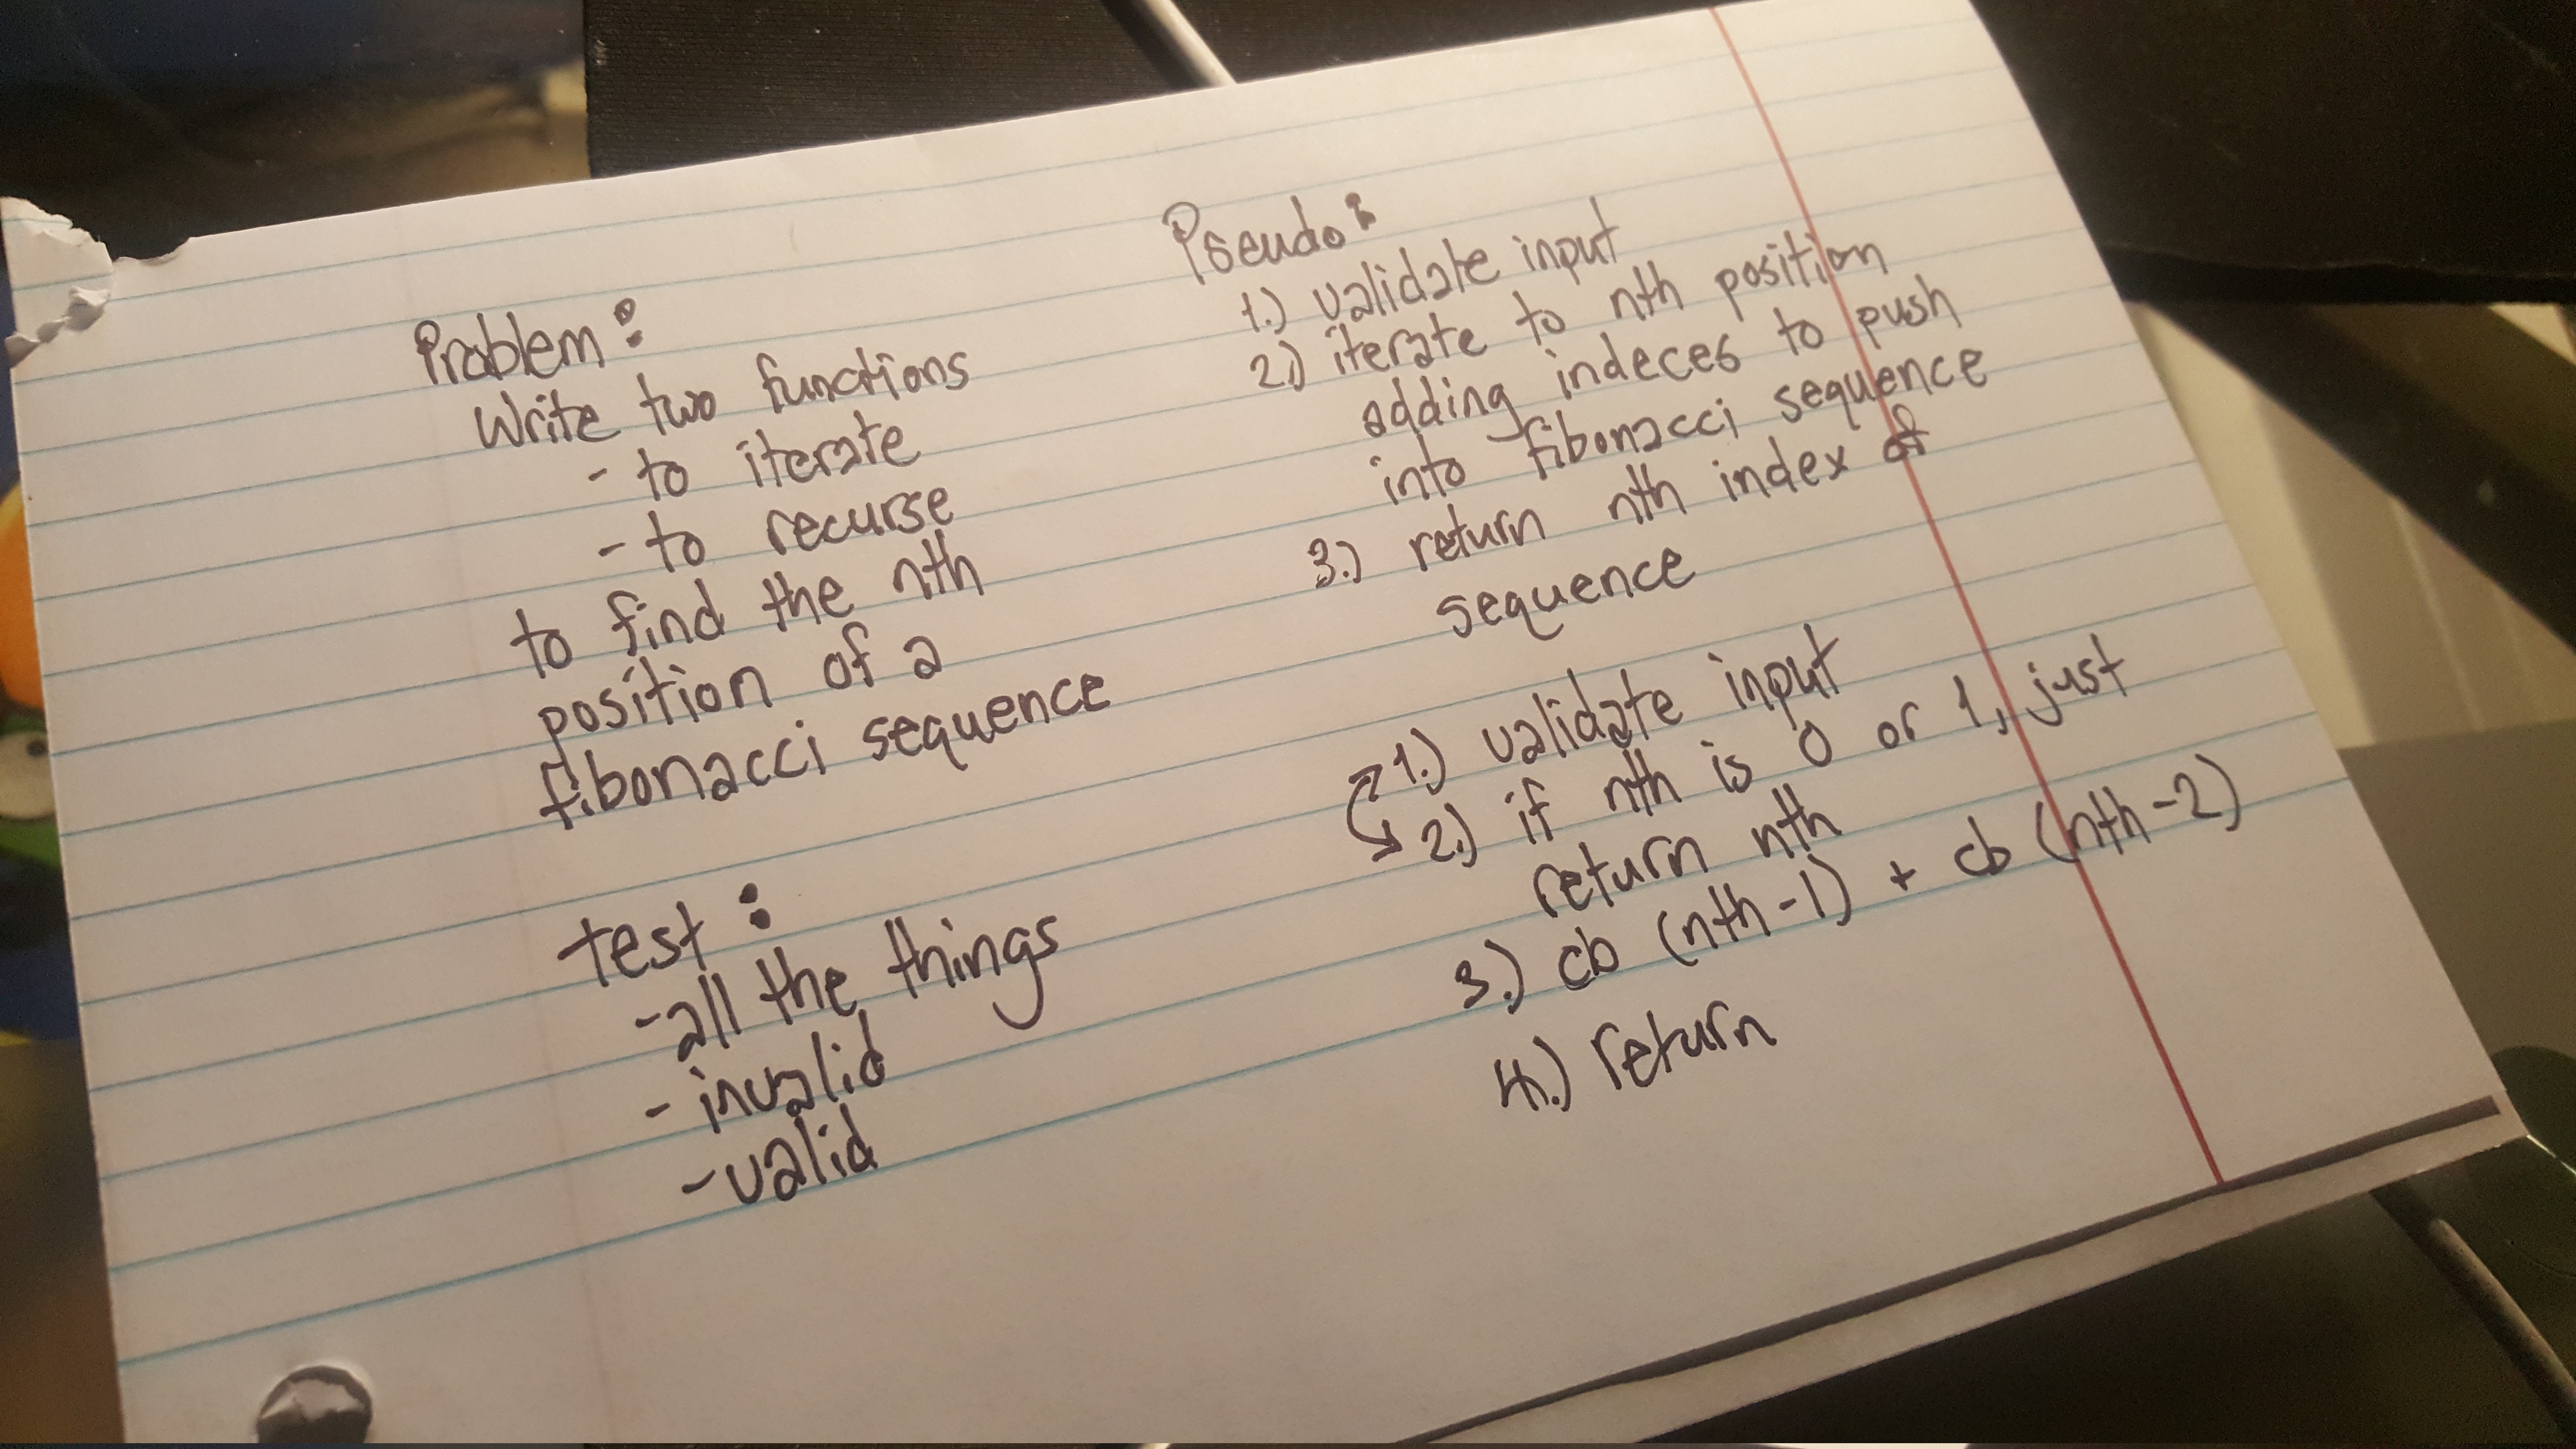 Problem:
Write two functions
- to iterate
- to recurse
to find the nth
position of a
fibonacci sequence
test:
-all the things
- invalid
-valid
Pseudo:
1.) validate input
2.) iterate to nth position
adding indeces to push
into fibonacci sequence
3.) return nth index of
sequence
1.) validate input
2.) if nth is 0 or 1, just
return nth
3.) cb (nth-1) + cb (nth-2)
4.) return